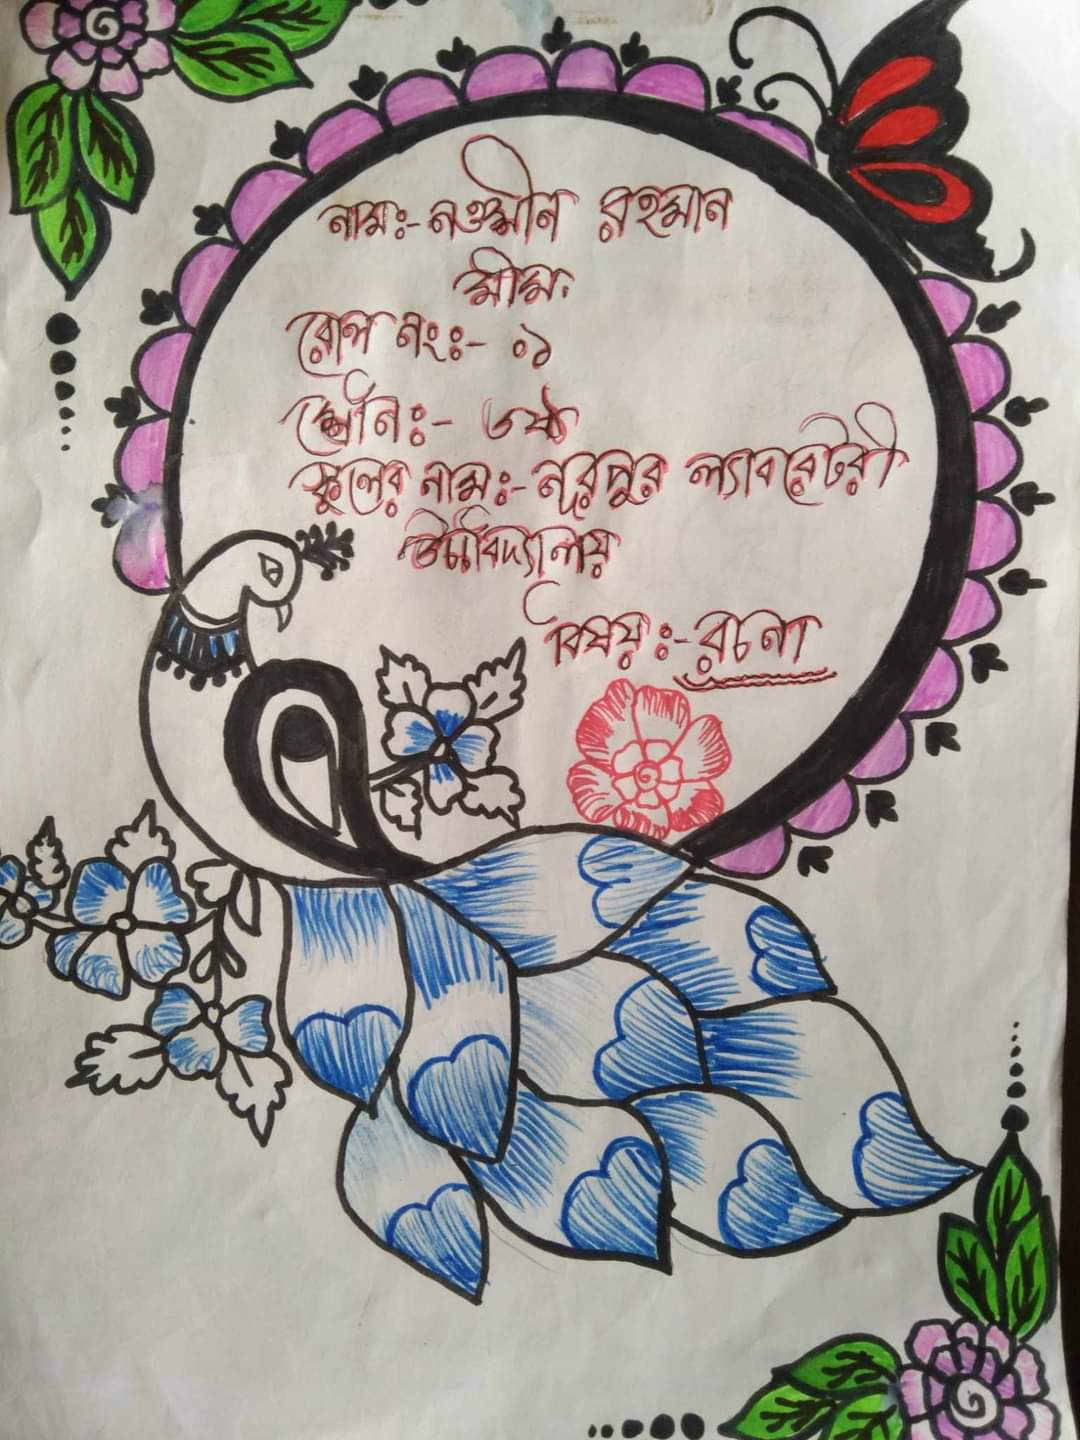 নামঃ- নওমীন রহমান
মীম
রোল নংঃ- ০১
শ্রেণিঃ- ৬ষ্ঠ
স্কুলের নামঃ- নূরপুর ল্যাবরেটরী
উচ্চবিদ্যালয়
বিষয়ঃ- রচনা